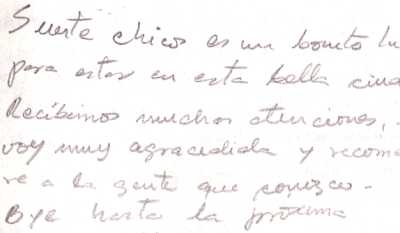 Suerte chicos es un bonito lu
para estar en esta bella ciud
Recibimos muchas atenciones,
voy muy agradecida y recome
re a la gente que conozco.
Bye hasta la próxima